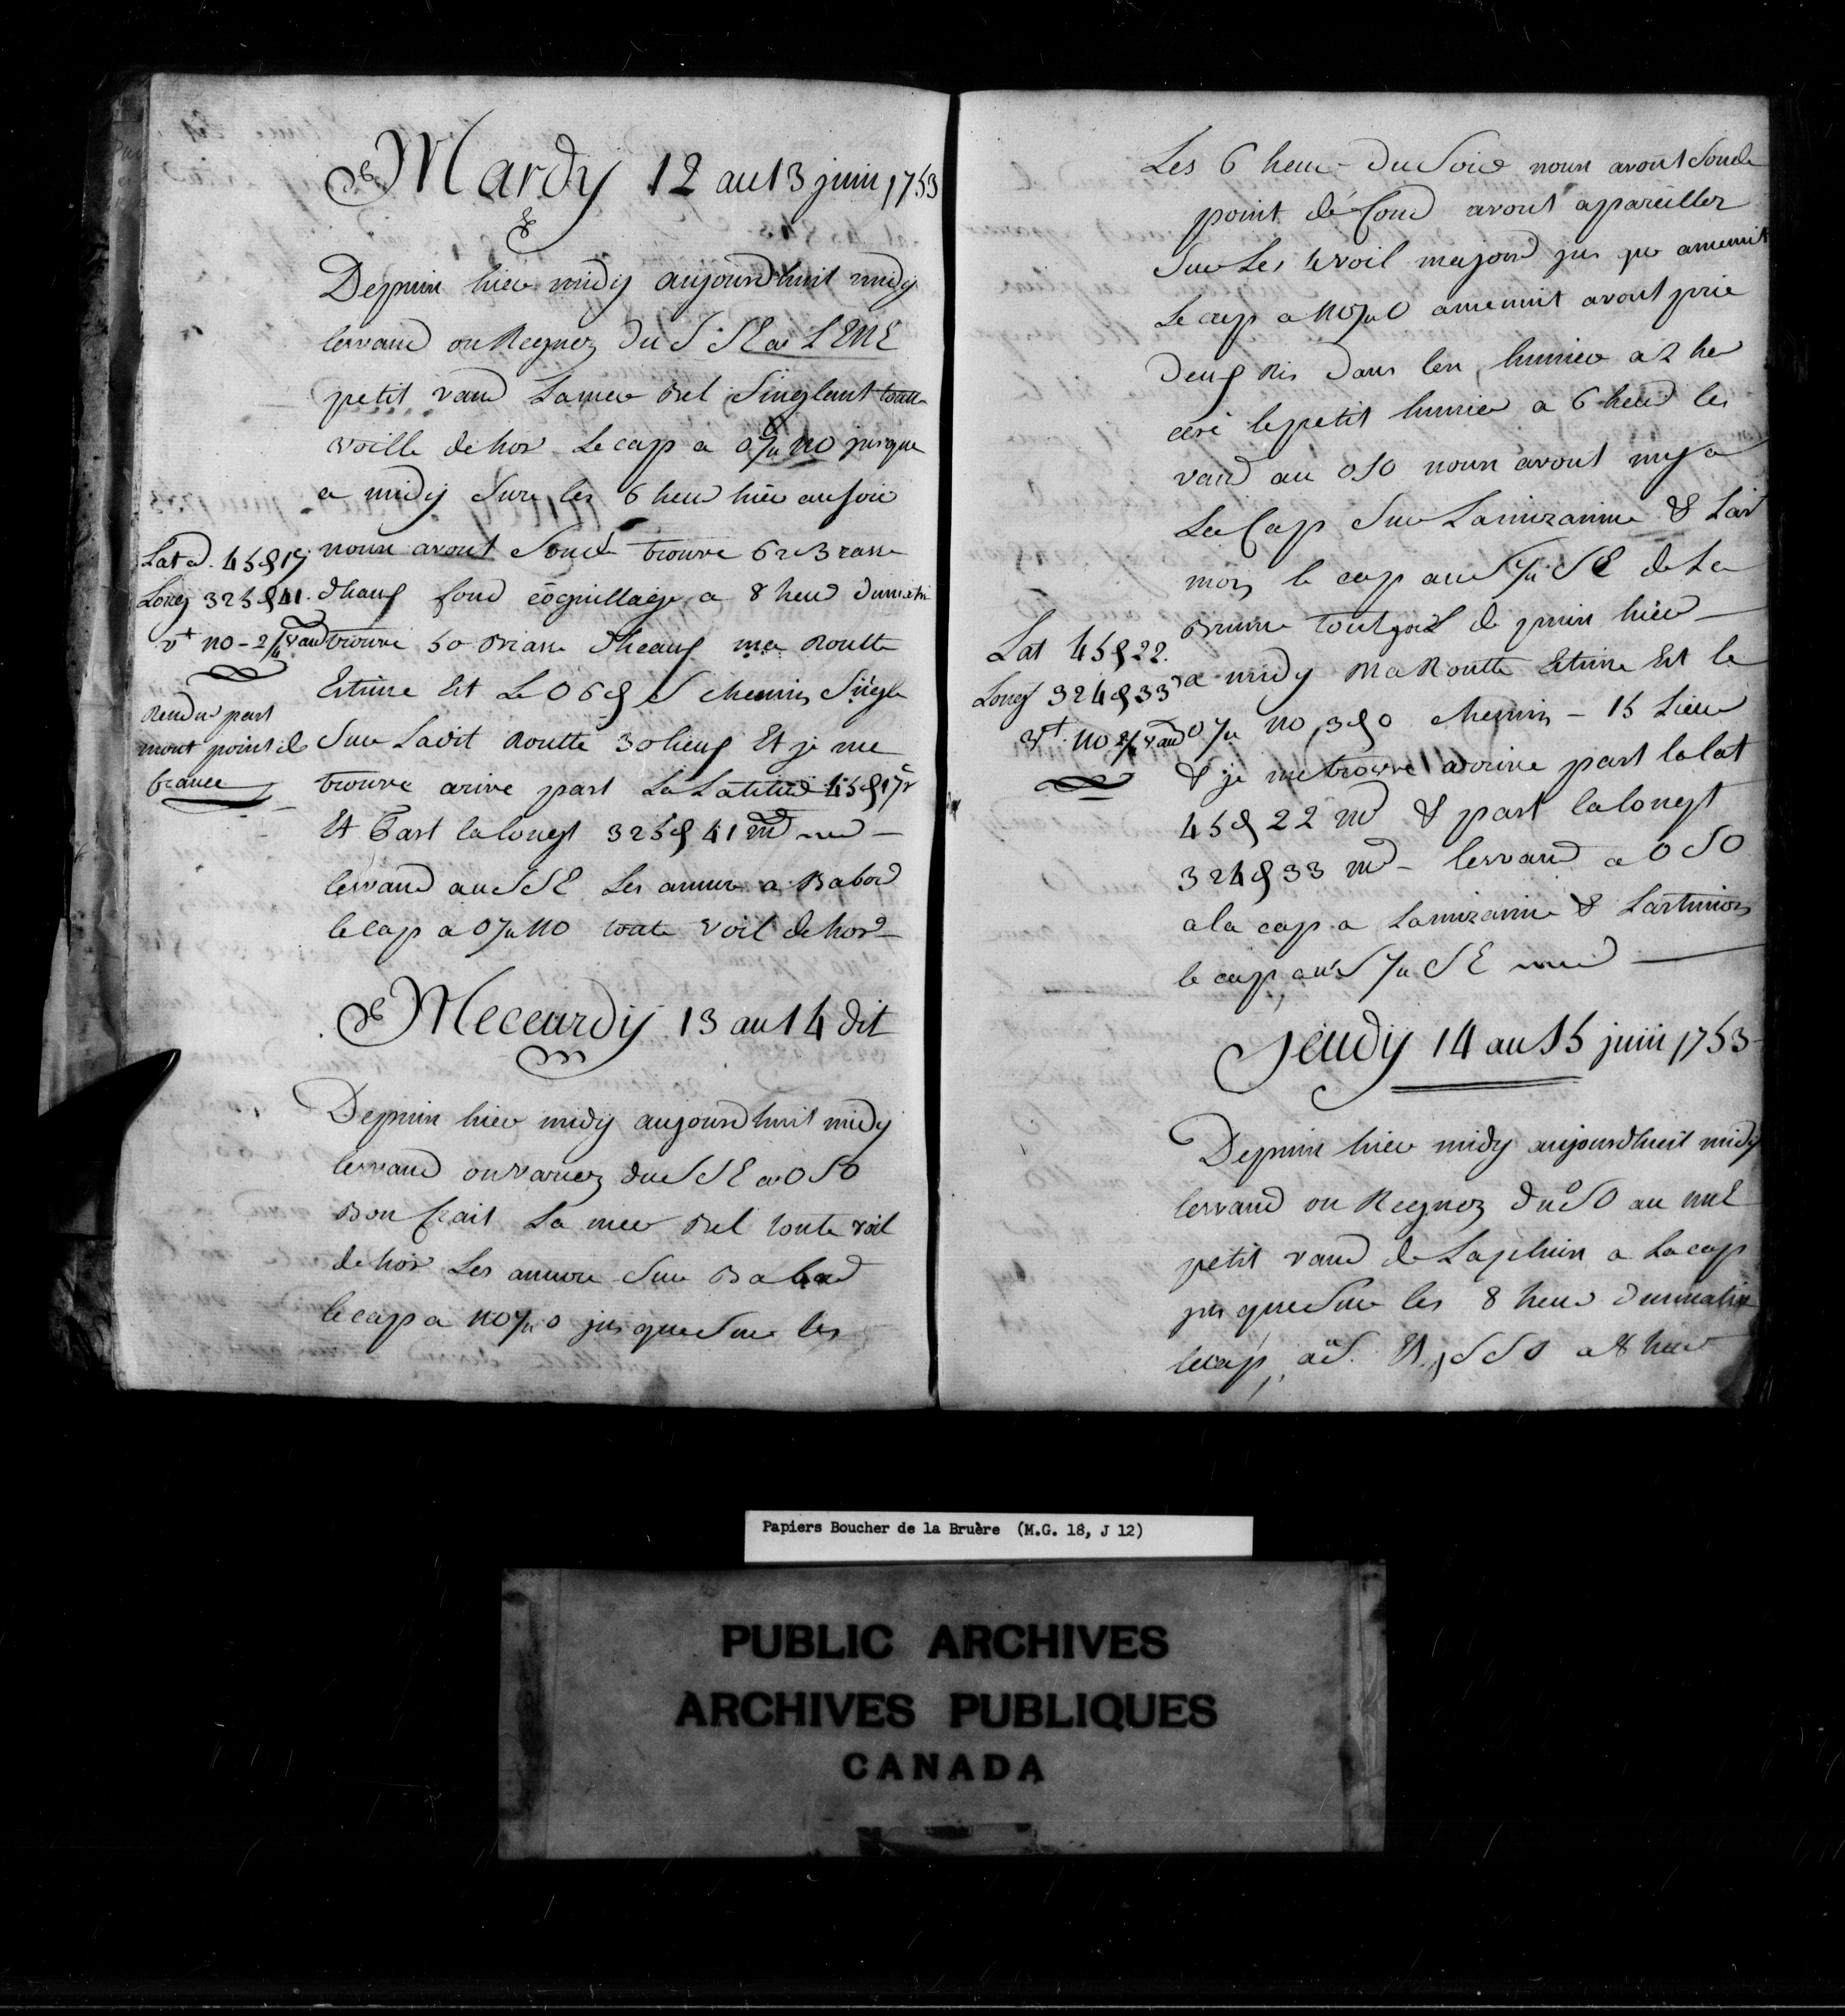 Mardy 12 au 13 juin 1753
Depuin hier midy aujourdhuit midy
levand ou Regnez du S SE a LENE
petit vand Lamer Bel Singlant toutte
voille dehor Le cap a O ¼ NO jusque
a midy Sure les 6 heur hier au soir
nourn avont Sondé trouve 62 Brasse
dhauf fond coquillage a 8 heur du matin
trouvé 50 Brasse dheauf ma Routte
Estime Est Le O 6 S chemin Single
Sur Ladit Routte 30 lieuf Et je me
trouve arive part La Latitud 45 17
Et Part la longt 325 41 md
levand au SSE Les amure a Babord
le cap a O ¼ NO toute voil dehor
Latd. 45 17
Long 325 41
vt NO - 2/4 vand
Rendu part
mont point de
france
Meceurdy 13 au 14 dit
Depuin hier midy aujourdhuit midy
levand ou variez du SSE a OSO
Bon frait La mer Bel toute voil
dehor Les amure Sur Babord
le cap a NO ¼ O jusque Sur les
Les 6 heur du Soir nourn avont Sonde
point de fond avont apareiller
Sur Les voil majord jus que
Le cap a NO ¼ O avont prie
deuf Ris dans len hunier a 2 heu
céré le petit hunier a 6 heur les
vand au OSO nourn avont mis a
La Cap Sur La mizainne & Lart
mon le cap au S ¼ SE de La
Brume tout de puin hier
a midy Ma Routte Estime Est le
O ¼ NO 3 O chemin - 15 Lieu
& je me trouve arrive part la lat
45 22 md & part la longt
324 33 md - levand a OSO
a la cap a La mizainne & Lartimon
le cap au S ¼ SE
Lat 45 22.
Longt 324 33
Vt. NO 2/4 vand
Jeudy 14 au 15 juin 1753
Depuin hier midy aujourdhuit midy
levand ou Regnez du SO au NNE
petit vand de La pluin a La cap
jus que Sur les 8 heur du matin
lecap au S. SSO a 8 heur
Papiers Boucher de la Bruère (M.G. 18, J 12)
PUBLIC ARCHIVES
ARCHIVES PUBLIQUES
CANADA